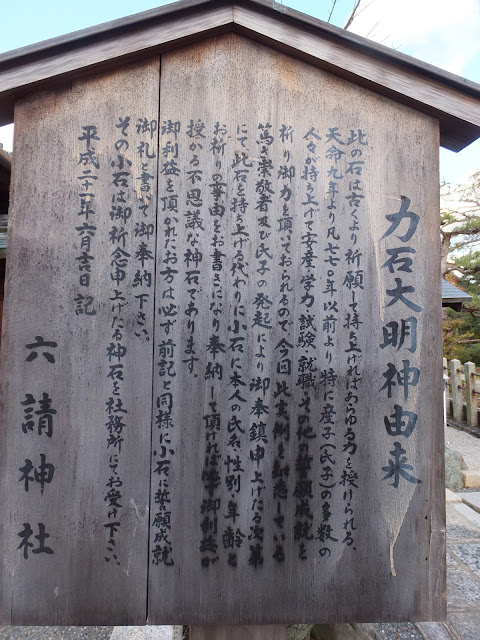 力石大明神由来
此の石は古くより祈願して持ち上げればあらゆる力を授けられる、
天命九年より凡七七〇年以前より特に産子(氏子)の多数の
人々が持ち上げて安産・学力・試験・就職・その他の誓願成就を
祈り御力を頂いておられるので、今回此実例を知悉している
篤き崇敬者及び氏子の発起により御奉鎮申上げたる次第
にて此石を持ち上げる代わりに小石に本人の氏名・性別・年齢と
お祈りの事由をお書きになり奉納して頂ければ御利益が
授かる不思議な神石であります。
御利益を頂かれたお方は必ず前記と同様に小石に誓願成就
御礼と書いて御奉納下さい。
その小石は御祈念申上げたる神石を社務所にてお受け下さい。
平成二十一年六月吉日記
六請神社